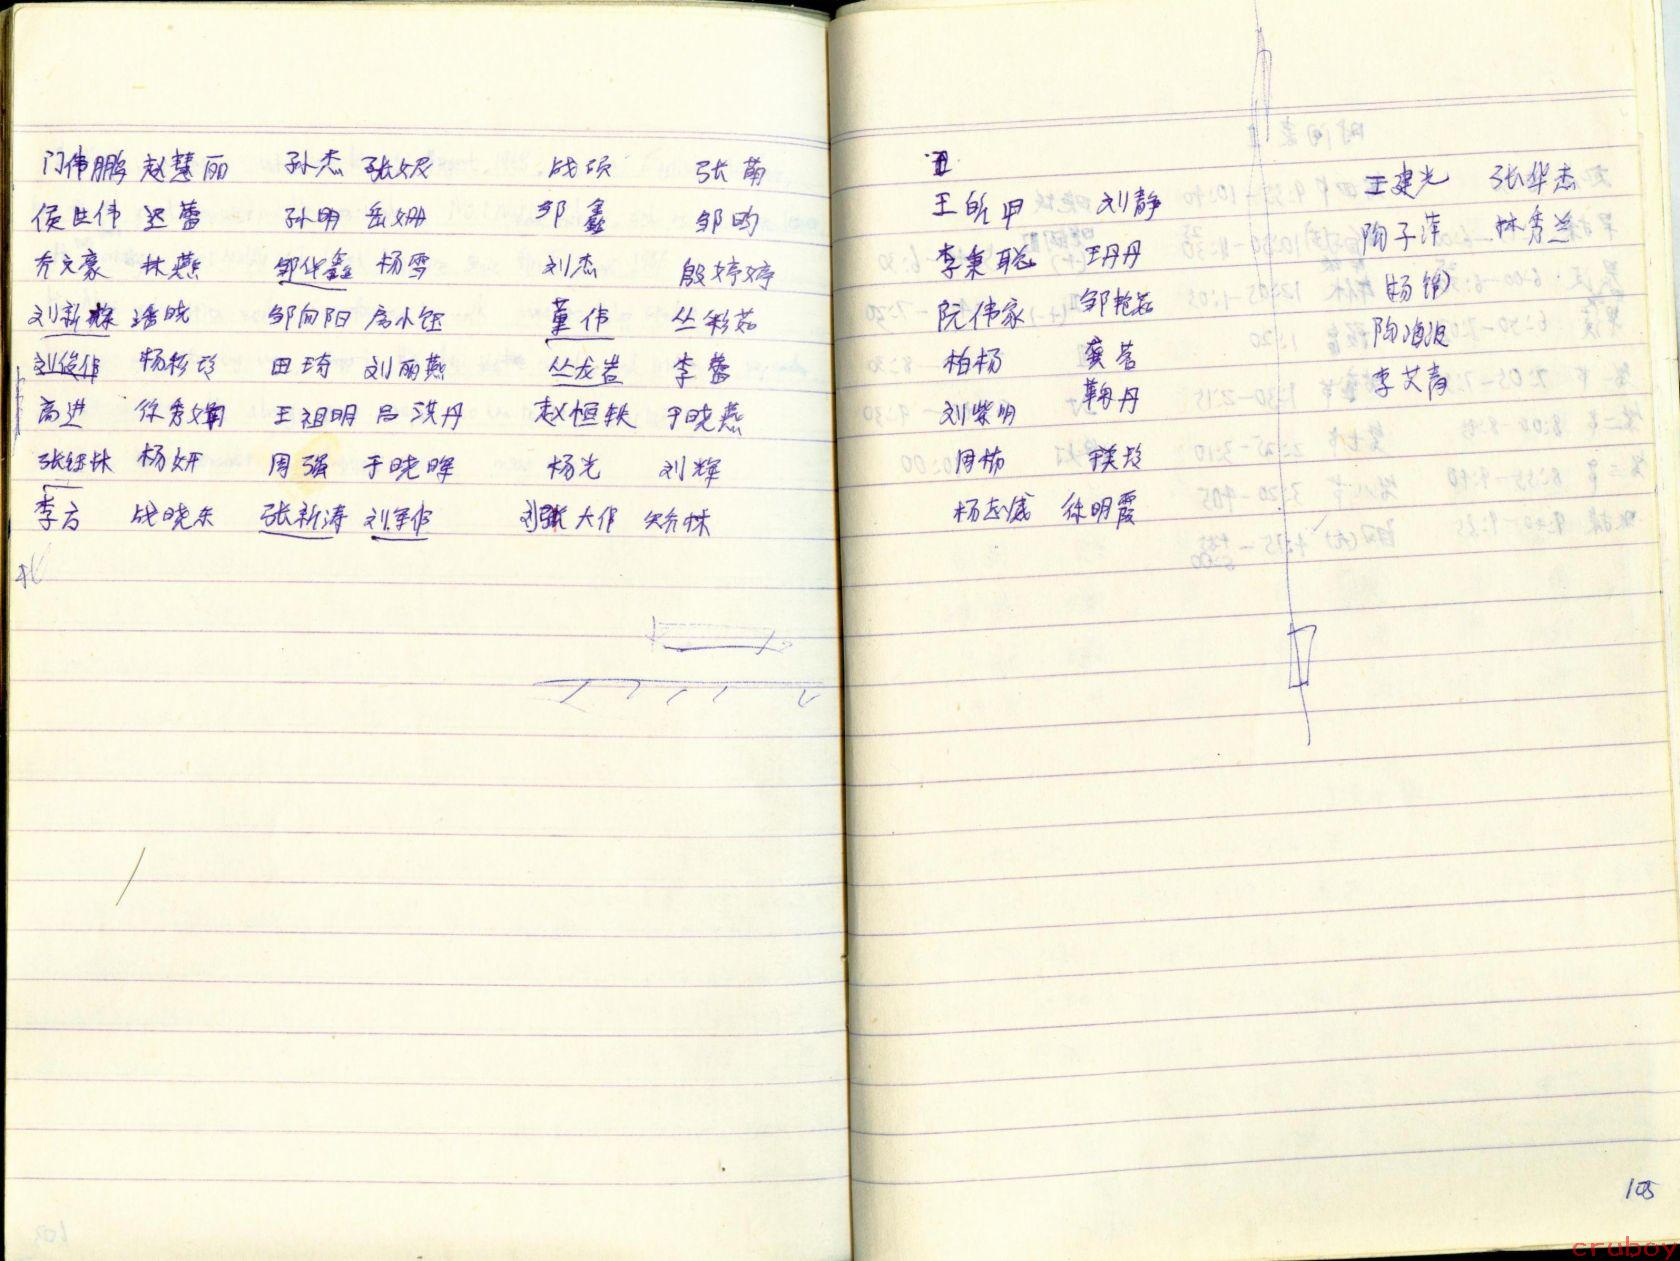 门伟鹏 赵慧丽 孙杰 张妮 战硕 张萌
侯世伟 迟蕾 孙明 岳姗 邹鑫 邹昀
乔文豪 林燕 邹华鑫 杨雪 刘杰 殷婷婷
刘新 潘晓 邹向阳 房小钰 董伟 丛彩茹
刘俊作 杨彩玲 田琦 刘丽燕 丛龙岩 李蕾
高进 徐秀娟 王祖明 吕洪丹 赵恒轶 于晓燕
张钰林 杨妍 周强 于晓晖 杨光 刘辉
李方 战晓东 张新涛 刘军作 刘大作 林
王甲 刘静 王建光 张华杰
李秉聪 王丹丹 陶子萍 林秀兰
阮伟家 邹艳 杨
柏杨 龚 陶海波
刘紫明 鞠丹 李艾青
周
杨志盛 徐明霞
105
cruboy